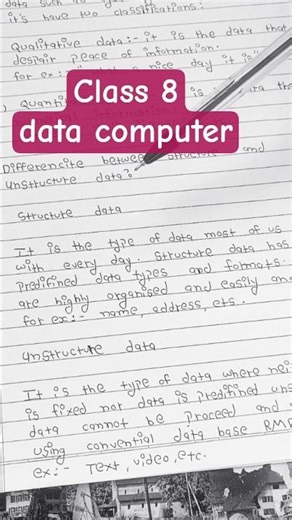 data such as
it's have two classifications:
Qualitative data:- it is the data that
despair peace of information.
for ex:- nice day it is
Class 8
data computer
Quanti is the
Differencite between structure and
unstructure data?
Structure data
It is the type of data most of us
with every day. Structure data has
predifined data types and formats.
are highy organised and easily an
for ex:- name, address, ets.
unstructure data
It is the type of data where nei
is fixed nor data is predifined uns
data cannot be proceed and
using convential data base RMD
ex:- Text, video, etc.